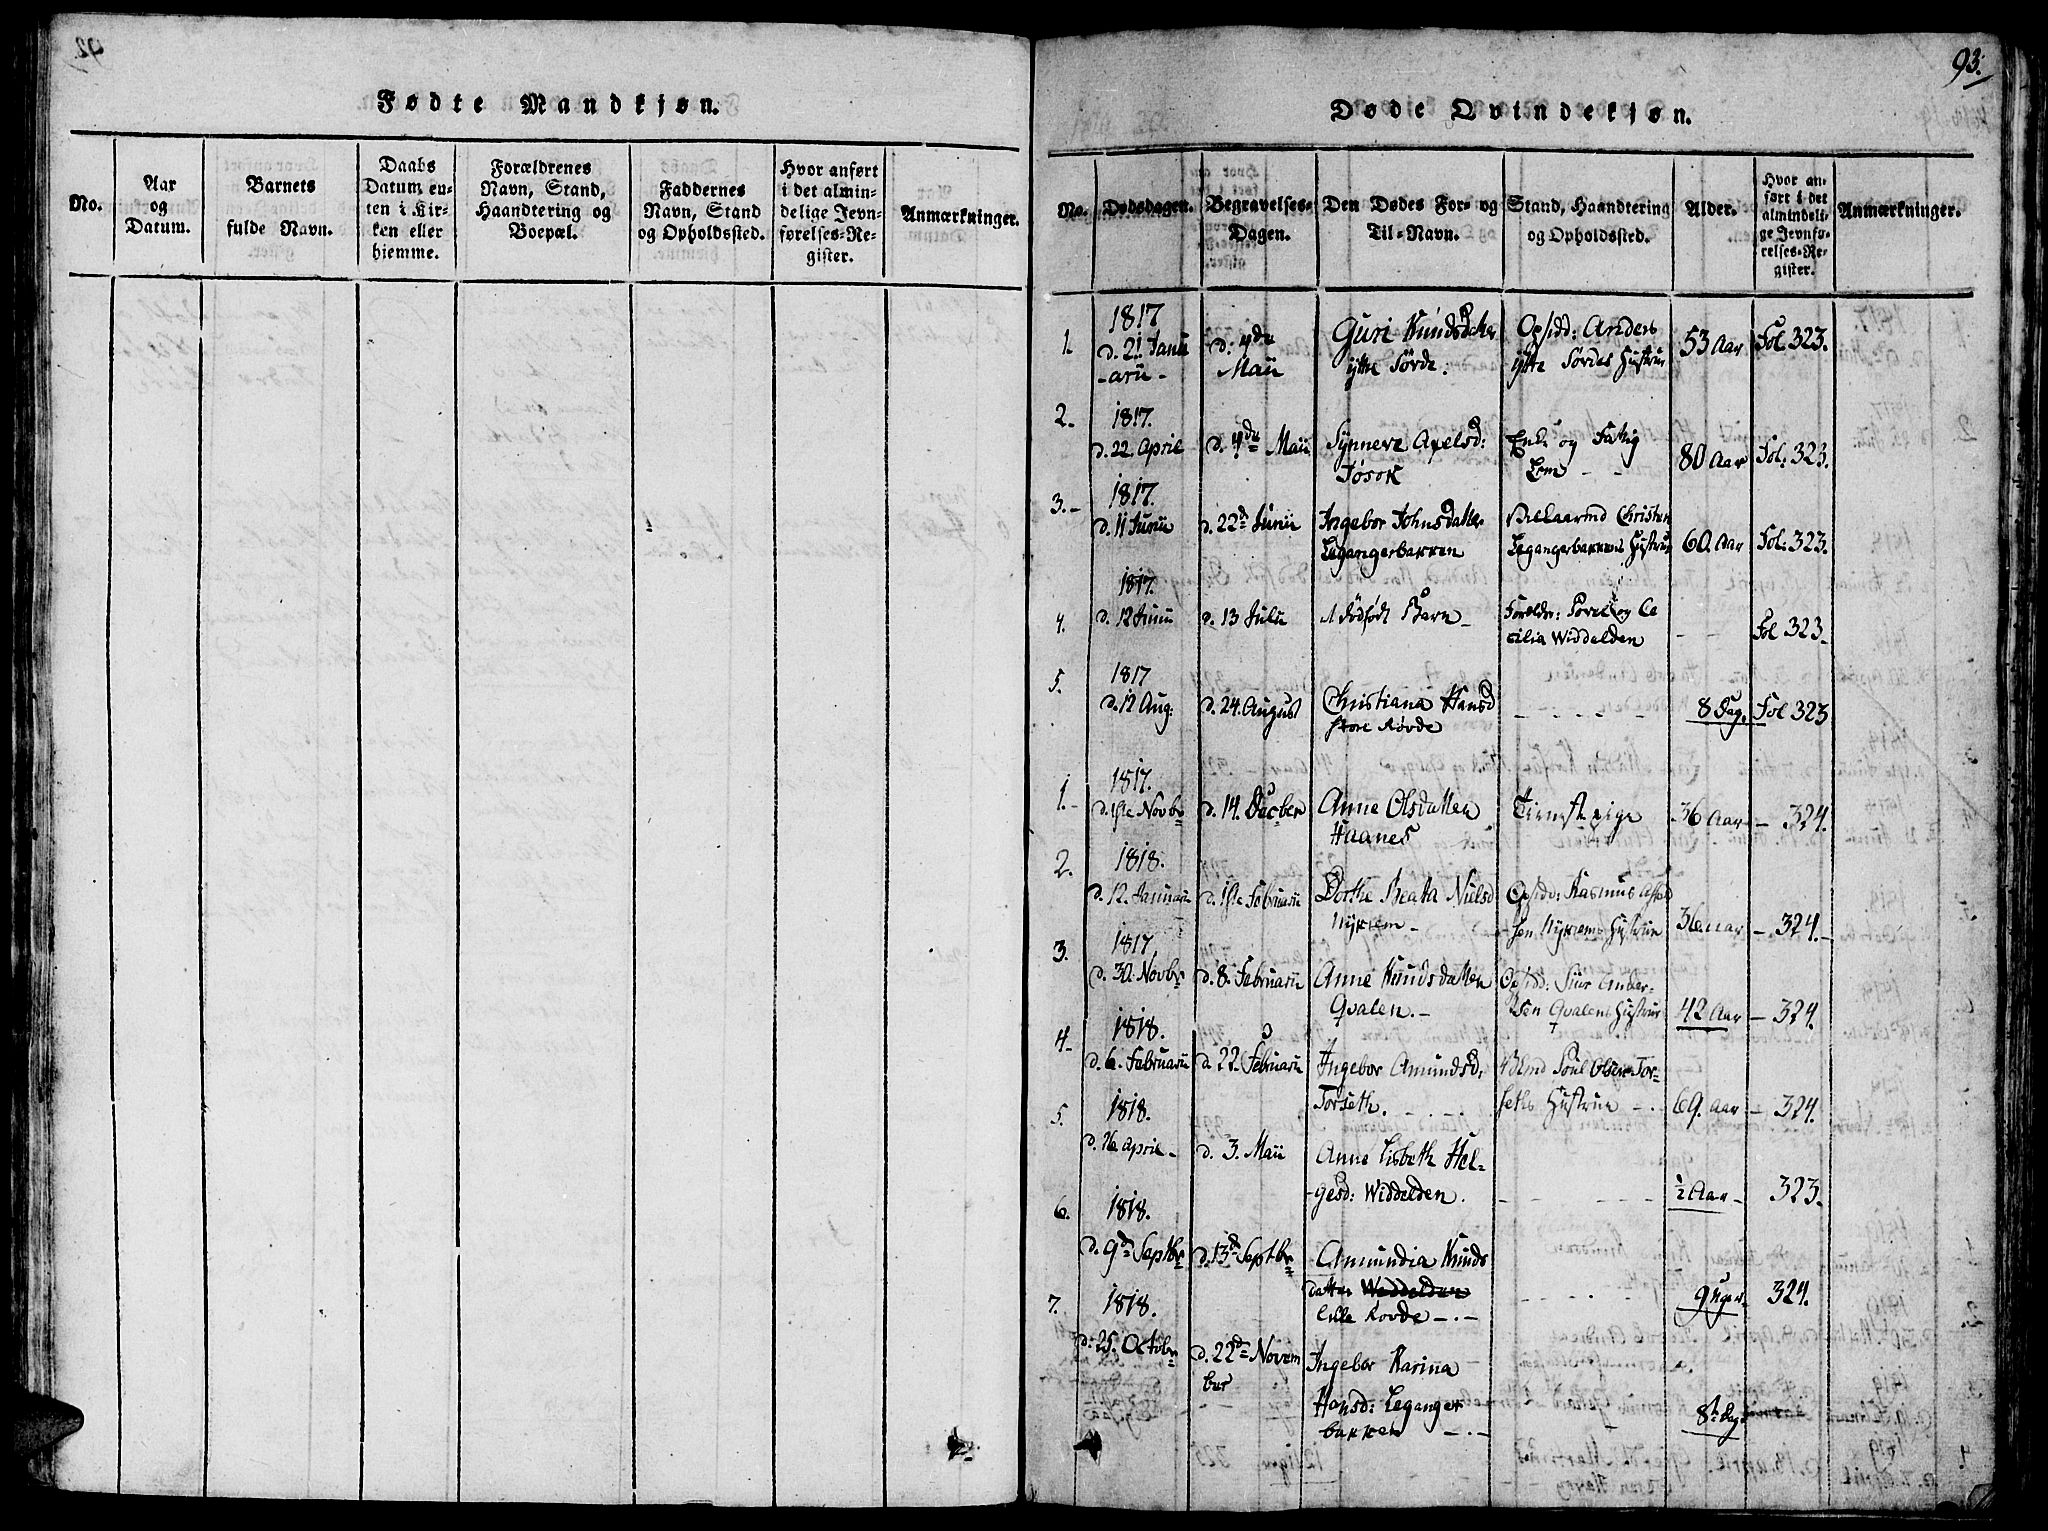 92.
Fødte Mandkjøn.
No.
Aar
og
Datum.
Barnets
fulde Navn.
Daabs
Datum en-
ten i Kir-
ken eller
hjemme.
Forældrenes
Navn, Stand,
Haandtering og
Boepæl.
Faddernes
Navn, Stand
og Opholdssted.
Hvor anført
i det almin-
delige Jevn-
førelses-Re-
gister.
Anmærkninger.
93.
Døde Qvindekjøn.
No.
Dødsdagen.
Begravelses-
Dagen.
Den Dødes For- og
Til-Navn.
Stand, Haandtering
og Opholdssted.
Alder.
Hvor an-
ført i det
almindeli-
ge Jevnfø-
relses-Re-
gister.
Anmærkninger.
1.
1817
d. 21 Janu
-arii-
d. 4de
Maii
Guri Knudsdatter
ytte Sørde.
Opsidd: Anders
ytte Sørdes Hustrue
53 Aar
Fol 323.
2.
1817.
d. 22. April
d. 4de Maii
Synneve Axelsd:
Jøsok
Enke og Fattig
Lem - -
80 Aar
Fol: 323.
3.-
1817.
d. 11 Junii
d. 22d Junii
Ingebor Johnsdatter
Legangerbakken
Christen
Legangerbakkens Hustrue
60. Aar
Fol: 323.
4.
1817.
d. 12 Junii
d. 13 Julii
1 dødfødt Barn -
Forældr: og Ce
cilia Widdelden
- -
Fol 323-
5.
1817
d. 12 Aug.
d. 24. August
Christiana Hansd
store Røvde
- - - - -
8 Dag.
Fol 323
1.-
1817.
d. 1ste Novbr
d. 14. Decber
Anne Olsdatter
Haanes
Tienstpige
36 Aar
- 324.
2.
1818.
d. 12. Januarii
d. 1ste Februarii
Dorthe Beata Nielsd
Nykrem -
Opsidd: Rasmus
sen Nykrems Hustrue
36 Aar
- 324.-
3.
1817
d. 30. Novbr
d. 8. Februarii
Anne Knudsdatter
Qvalen.-
Opsidd: Siur Ander-
sen Qvalens Hustrue
42 Aar
- 324.
4-
1818.
d. 6. Februarii
d. 22. Februarii
Ingebor Amundsd:
Torseth. - . - .
Poul Olsen Tor-
seths Hustrue - .
69. Aar
- 324.
5.
1818.
d. 26 April-
d. 3. Maii
Anne Lisbeth Hel-
-gesd: Widdelden.
- - - - -
½ Aar -
323.
6.
1818.
d. 9d Septbr
d. 13d Septbr
Amundia Knuds
datter Widdelden
lille Rovde -.-
- - - -
9 Uger.
324.
7.
1818.
d. 25. Octobr
d. 22d Novem
ber
Ingebor Karina
Hansd: Leganger
bakken -.-
8 Dage